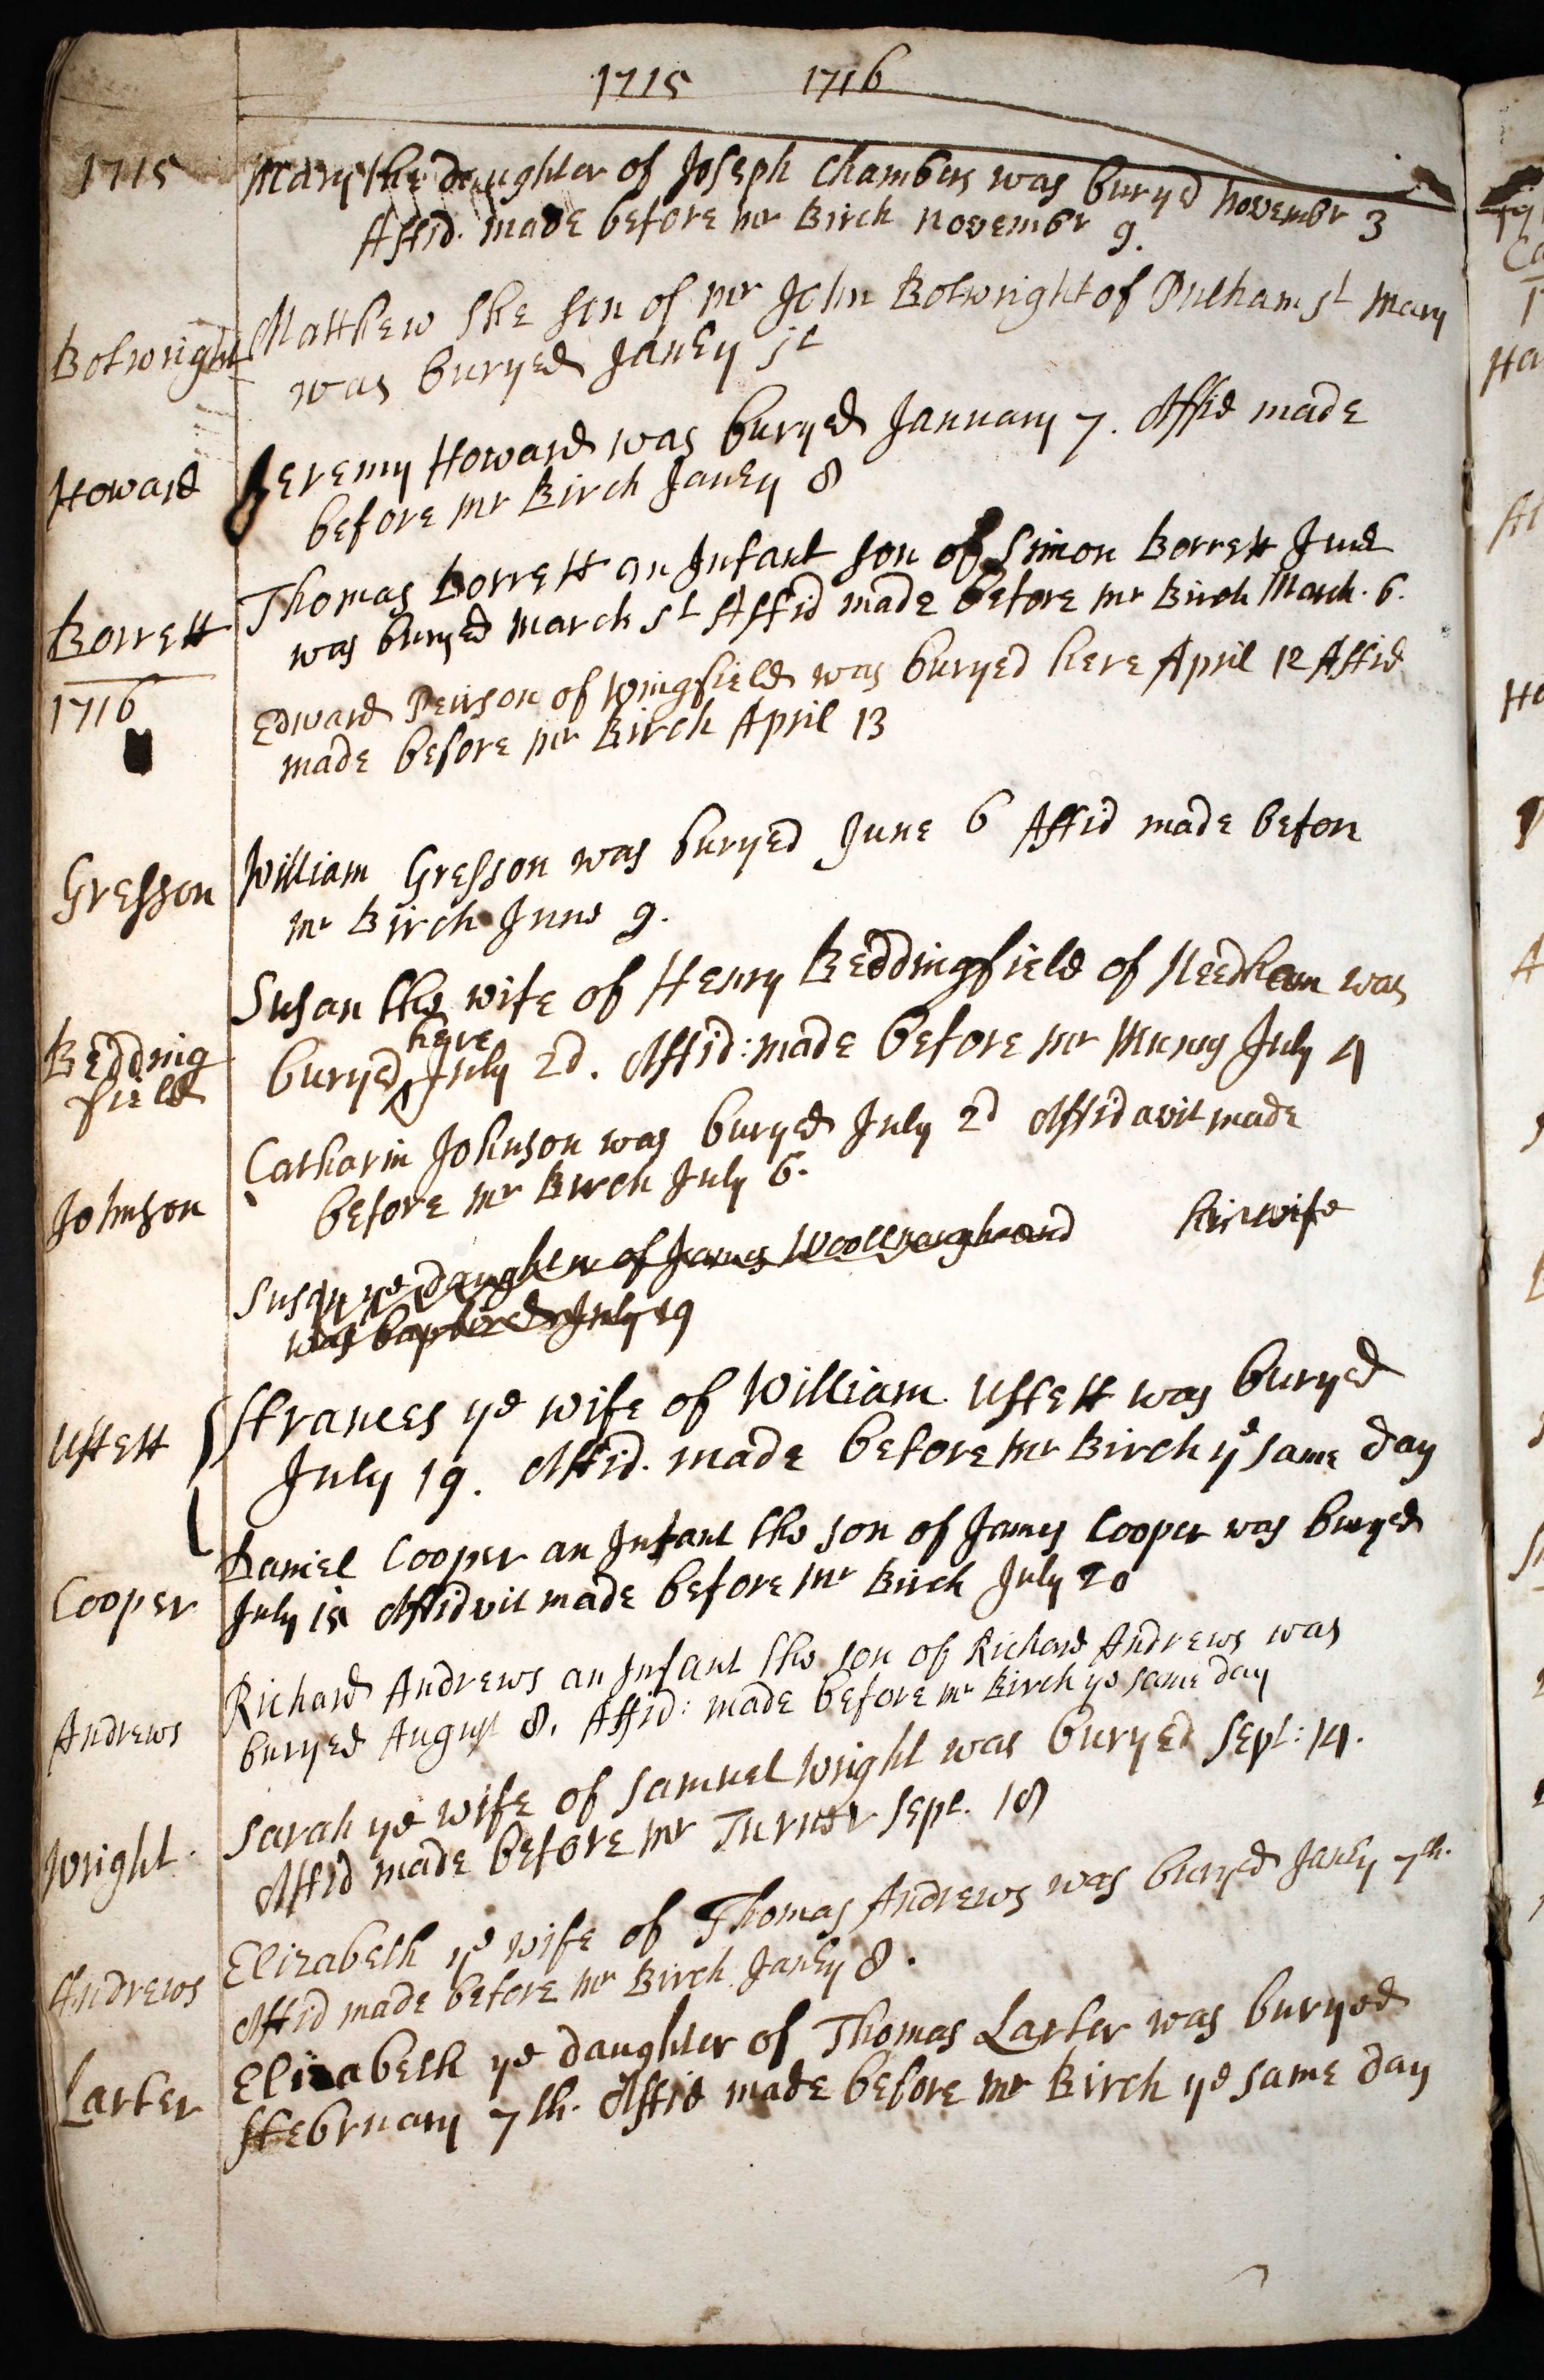 1715 1716
1715
Mary the daughter of Joseph Chambers was buryed Novembr 3
Affid. made before mr Birch Novembr 9.
Botwright
Matthew the son of mr John Botwright of Pulham st Mary
was buryed Janry 5t
Howard
Jeremy Howard was buryed January 7. Affid made
before mr Birch Janry 8
Borrett
Thomas Borrett an Infant son of Simon Borrett Junr
was buryed March 5t Affid made before mr Birch March. 6.
1716
Edward Peirson of Wingfield was buryed here April 12 Affid
made before mr Birch April 13
Gresson
William Gresson was buryed June 6 Affid made before
mr Birch June 9.
Bedding
field
Susan the wife of Henry Beddingfield of Needham was
here
buryed ^ July 2d. Affid: made before mr July 4
Johnson
Catharin Johnson was buryed July 2d Affidavit made
before mr Birch July 6.
Susan ye daughter of James Woollnough and his wife
was baptized July 19
Uffett
Ffrances ye wife of William Uffett was buryed
July 19. Affid. made before mr Birch ye same day
Cooper
Daniel Cooper an Infant the son of James Cooper was buryed
July Affidvit made before mr Birch July 20
Andrews
Richard Andrews an Infant the son of Richard Andrews was
buryed August 8. Affid: made before mr Birch ye same day
Wright.
Sarah ye wife of Samuel Wright was buryed Sept: 14.
Affid made before mr Turner Sept. 18
Andrews
Elizabeth ye wife of Thomas Andrews was buryed Janry 7th.
Affid made before mr Birch Janry 8.
Larter
Elizabeth ye daughter of Thomas Larter was buryed
ffebruary 7th. Affid made before mr Birch ye same day